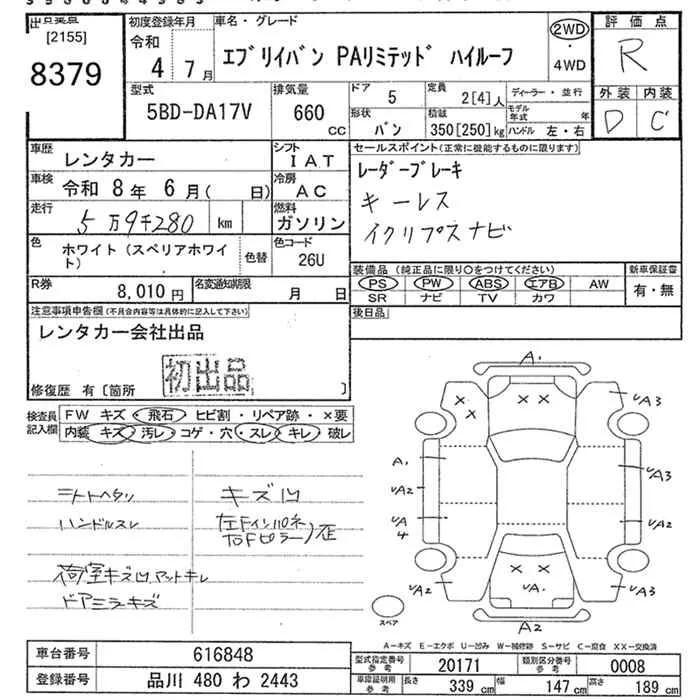 出品業点
[2155]
8379
初度登録年月
令和
4 7月
車名・グレード
エブリイバン PAリミテッド ハイルーフ
2WD
・
4WD
評価点
R
外装 内装
D C
型式
5BD-DA17V
排気量
660
CC
ドア
5
定員
2[4]人
形状
バン
積載
350[250]kg
ディーラー・並行
モデル年式 年
ハンドル 左・右
車歴
レンタカー
シフト
IAT
車検
令和 8年 6月( 日)
冷房
AC
走行
5万9千280 km
燃料
ガソリン
色
ホワイト(スペリアホワイト)
色替
色コード
26U
R券
8,010円
名変通知期限
月 日
セールスポイント(正常に機能するものに限ります)
レーダーブレーキ
キーレス
イクリプスナビ
装備品(純正品に限り○をつけてください)
PS PW ABS エアB AW
SR ナビ TV カワ
新車保証書
有・無
後日品
注意事項申告欄(不具合内容等は具体的に記入して下さい)
レンタカー会社出品
初出品
修復歴 有〔箇所 〕
検査員記入欄
FW キズ・飛石・ヒビ割・リペア跡・×要
内装 キズ・汚レ・コゲ・穴・スレ・キレ・破レ
シートヘタリ
ハンドルスレ
荷室キズ凹マットキレ
ドアミラーキズ
キズ凹
左Fインパネ
右Fピラー)歪
A1
×× ×
UA3
UA3
A1
UA2
UA4
UA3
UA2
UA2
××
UA1
UA3
A2
スペア
A-キズ E-エクボ U-凹み W-補修跡 S-サビ C-腐食 XX-交換済
車台番号
616848
登録番号
品川 480 わ 2443
型式指定番号 参考
20171
類別区分番号 参考
0008
車庫証明用 参考
長さ 339cm
幅 147cm
高さ 189cm